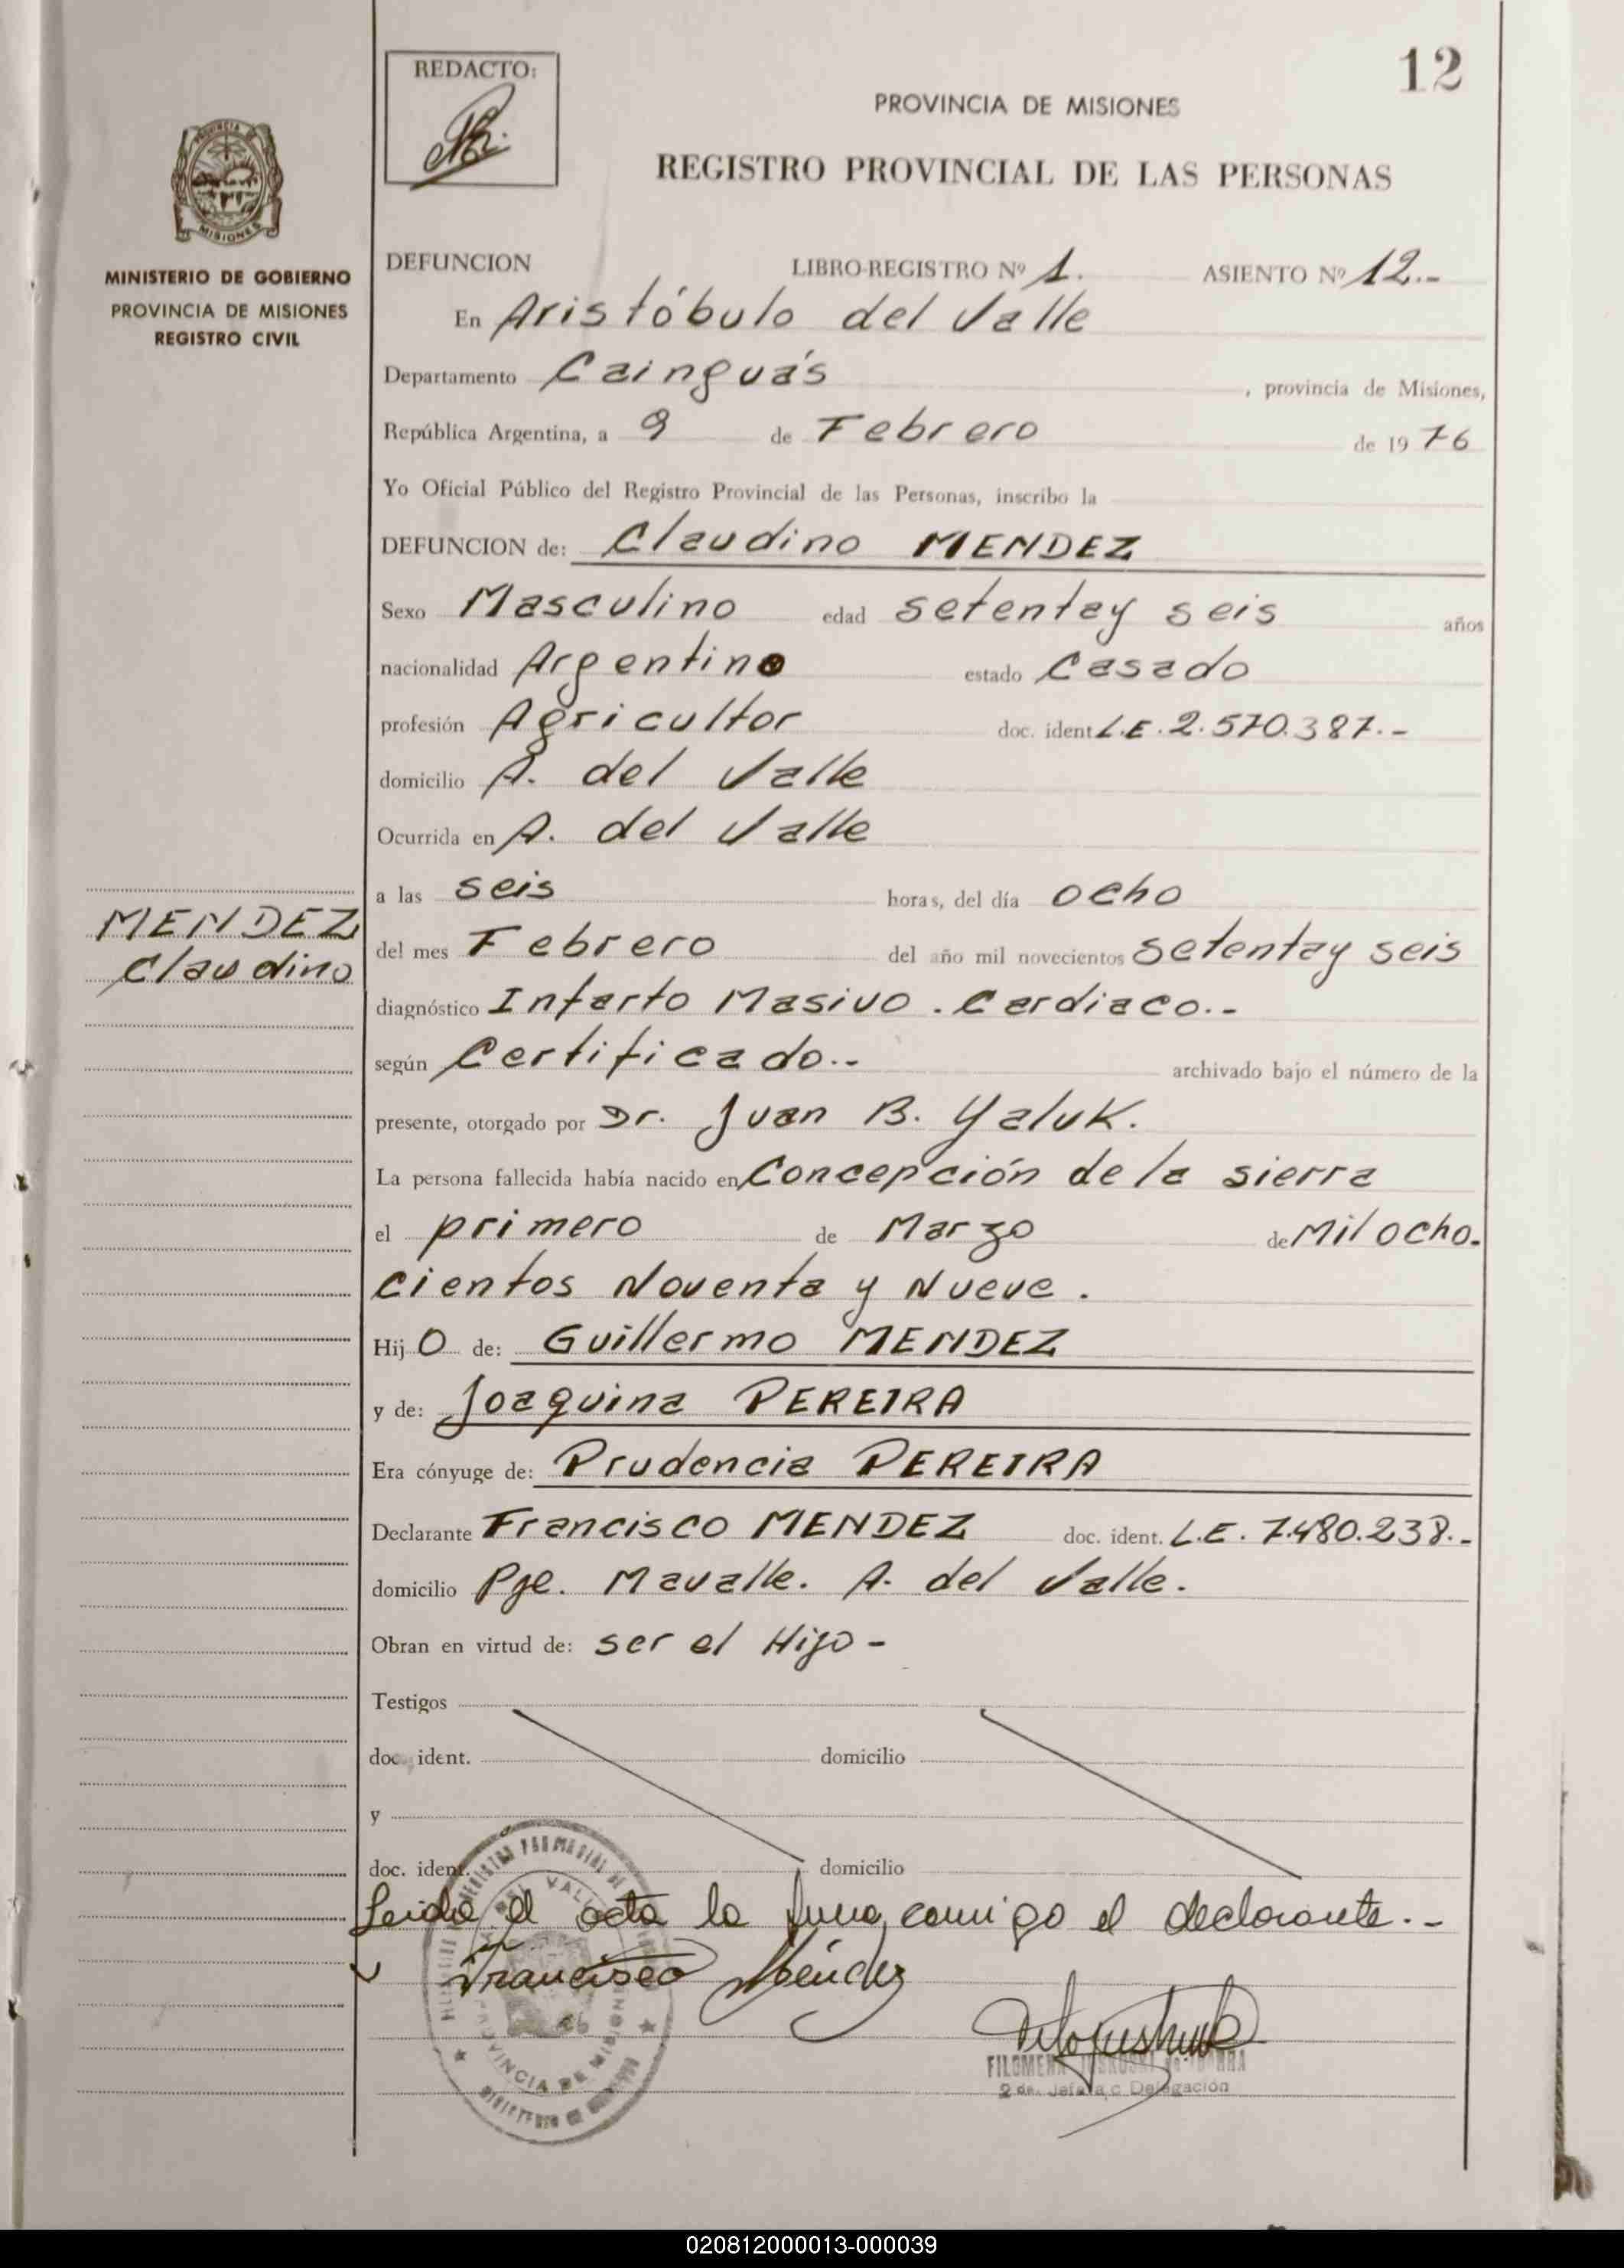 12
REDACTO:
PROVINCIA DE MISIONES
REGISTRO PROVINCIAL DE LAS PERSONAS
PROVINCIA DE
MISIONES
MINISTERIO DE GOBIERNO
PROVINCIA DE MISIONES
REGISTRO CIVIL
DEFUNCION LIBRO-REGISTRO Nº 1. ASIENTO Nº 12.-
En Aristóbulo del Valle
Departamento Cainguás , provincia de Misiones,
República Argentina, a 9 de Febrero de 1976
Yo Oficial Público del Registro Provincial de las Personas, inscribo la
DEFUNCION de: Claudino MENDEZ
Sexo Masculino edad setentay seis años
nacionalidad Argentino estado Casado
profesión Agricultor doc. ident L.E. 2.570.387.-
domicilio A. del Valle
Ocurrida en A. del Valle
a las seis horas, del día ocho
MENDEZ
Claudino
del mes Febrero del año mil novecientos setentay seis
diagnóstico Infarto Masivo . Cardiaco.-
según Certificado.- archivado bajo el número de la
presente, otorgado por Dr. Juan B. Yaluk.
La persona fallecida había nacido en Concepción de la sierra
el primero de Marzo de Mil ocho-
cientos Noventa y Nueve.
Hij O de: Guillermo MENDEZ
y de: Joaquina PEREIRA
Era cónyuge de: Prudencia PEREIRA
Declarante Francisco MENDEZ doc. ident. L.E. 7.480.238.-
domicilio Pje. Mavalle. A. del Valle.
Obran en virtud de: ser el Hijo -
Testigos
doc. ident. domicilio
y
doc. ident. domicilio
Leida el acta la firma comigo el declarante.-
Francisco Méndez
FILOMENA
2da. Jefa a/c Delegación
PROVINCIA DE MISIONES
020812000013-000039